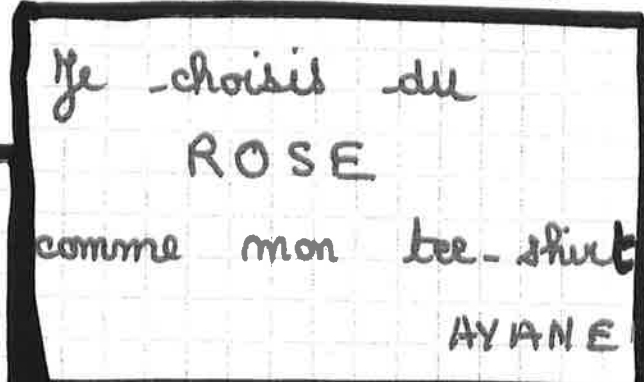 Je choisis du
ROSE
comme mon tee-shirt
AYANE